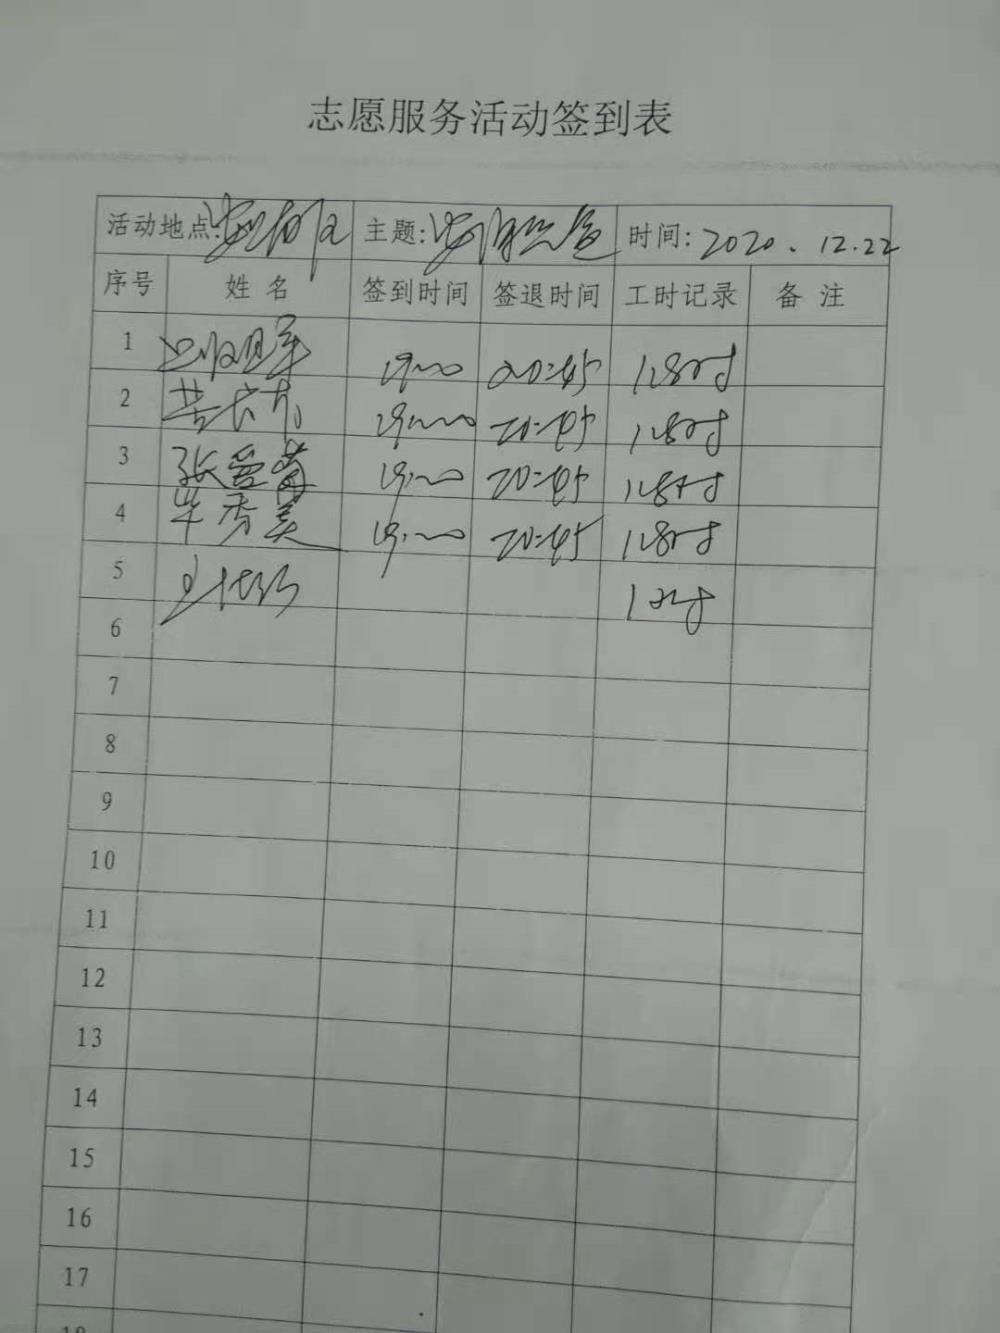 志愿服务活动签到表
活动地点: 主题: 时间: 2020.12.22
序号 姓名 签到时间 签退时间 工时记录 备注
1 19:00 20:45 1.8时
2 19:00 20:45 1.8时
3 张爱菊 19:00 20:45 1.8时
4 毕秀美 19:00 20:45 1.8时
5
6
7
8
9
10
11
12
13
14
15
16
17
18